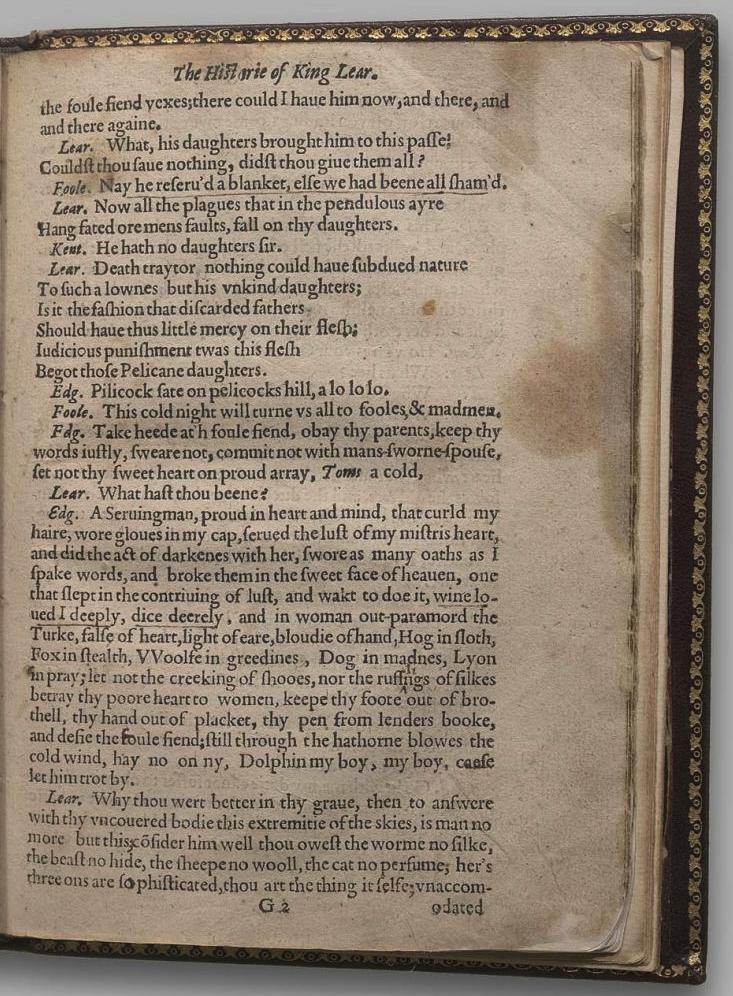 The Historie of King Lear.
the foule fiend vexes; there could I haue him now, and there, and
and there againe.
Lear. What, his daughters brought him to this passe?
Couldst thou saue nothing, didst thou giue them all?
Foole. Nay he reseru'd a blanket, else we had beene all sham'd.
Lear. Now all the plagues that in the pendulous ayre
Hang fated ore mens faults, fall on thy daughters.
Kent. He hath no daughters sir.
Lear. Death traytor nothing could haue subdued nature
To such a lownes but his vnkind daughters;
Is it the fashion that discarded fathers
Should haue thus little mercy on their flesh;
Iudicious punishment twas this flesh
Begot those Pelicane daughters.
Edg. Pilicock sate on pelicocks hill, a lo lo lo.
Foole. This cold night will turne vs all to fooles, & madmen.
Edg. Take heede at'h foule fiend, obay thy parents, keep thy
words iustly, sweare not, commit not with mans-sworne-spouse,
set not thy sweet heart on proud array, Toms a cold,
Lear. What hast thou beene?
Edg. A Seruingman, proud in heart and mind, that curld my
haire, wore gloues in my cap, serued the lust of my mistris heart,
and did the act of darkenes with her, swore as many oaths as I
spake words, and broke them in the sweet face of heauen, one
that slept in the contriuing of lust, and wakt to doe it, wine lo-
ued I deeply, dice deerely, and in woman out-paromord the
Turke, false of heart, light of eare, bloudie of hand, Hog in sloth,
Fox in stealth, VVoolfe in greedines, Dog in madnes, Lyon
in pray; let not the creeking of shooes, nor the ruslngs of silkes
betray thy poore heart to women, keepe thy foote out of bro-
thell, thy hand out of placket, thy pen from lenders booke,
and defie the foule fiend; still through the hathorne blowes the
cold wind, hay no on ny, Dolphin my boy, my boy, caese
let him trot by.
Lear. Why thou wert better in thy graue, then to answere
with thy vncouered bodie this extremitie of the skies, is man no
more but this cõsider him well thou owest the worme no silke,
the beast no hide, the sheepe no wooll, the cat no perfume, her's
three ons are sophisticated, thou art the thing it selfe; vnaccom-
G 2 odated